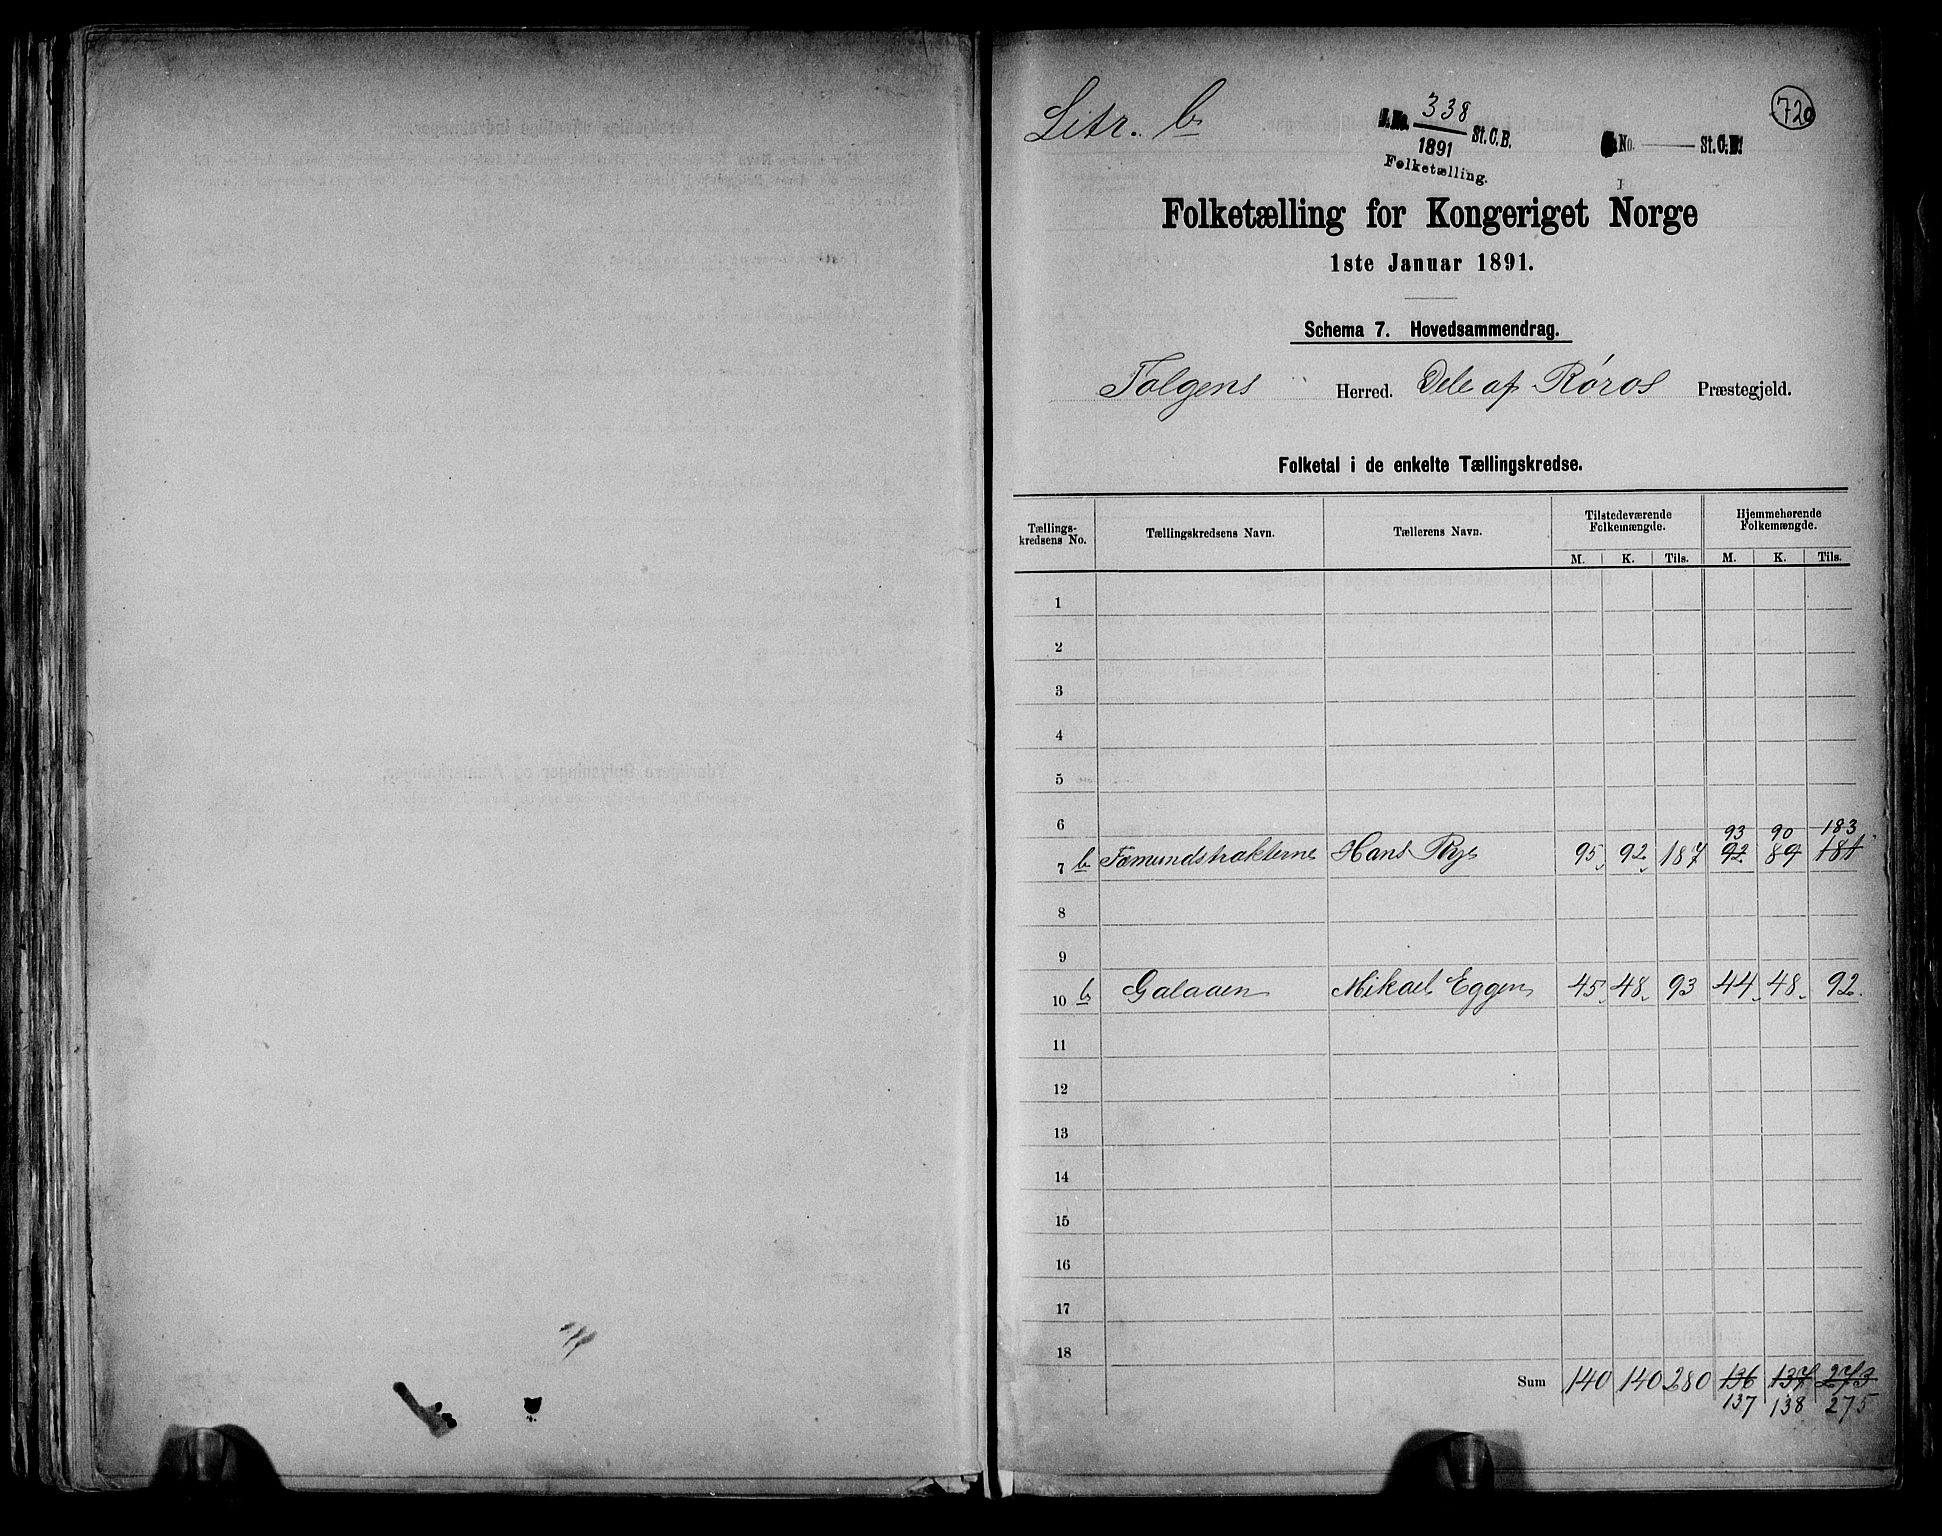 Litr. b
J.No. 338 St.C.B.
1891
Folketælling.
No. St.C.B.
720
Folketælling for Kongeriget Norge
1ste Januar 1891.
Schema 7. Hovedsammendrag.
Tolgens Herred. Dele af Røros Præstegjeld.
Folketal i de enkelte Tællingskredse.
Tællings-kredsens No. Tællingskredsens Navn. Tællerens Navn. Tilstedeværende Folkemængde. Hjemmehørende Folkemængde.
M. K. Tils. M. K. Tils.
1
2
3
4
5
6
93 90 183
7 b Fæmundstrakterne Hans Rye 95 92 187 92 89 181
8
9
10 b Galaaen Mikael Eggen 45 48 93 44 48 92
11
12
13
14
15
16
17
18
Sum 140 140 280 136 137 273
137 138 275